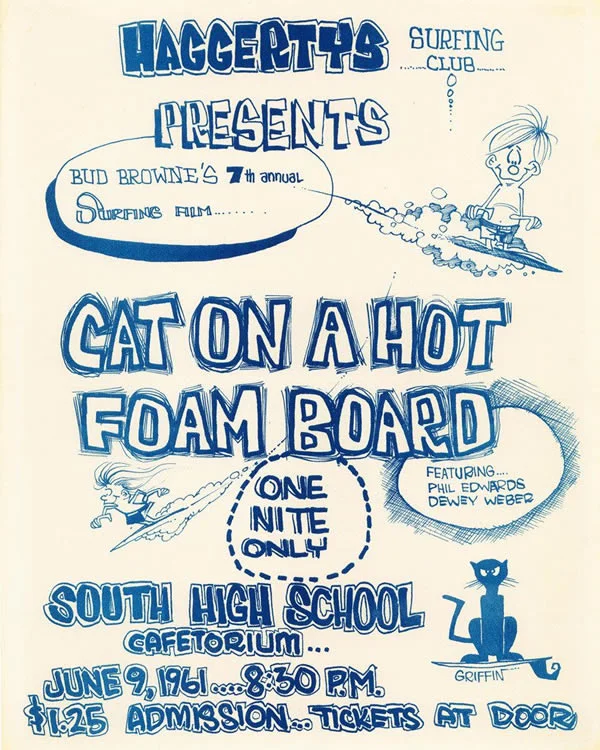 HAGGERTYS
SURFING
CLUB
PRESENTS
BUD BROWNE'S 7th annual
SURFING FILM.......
CAT ON A HOT
FOAM BOARD
FEATURING....
PHIL EDWARDS
DEWEY WEBER
ONE
NITE
ONLY
SOUTH HIGH SCHOOL
CAFETORIUM...
GRIFFIN
JUNE 9, 1961....8:30 P.M.
$1.25 ADMISSION... TICKETS AT DOOR